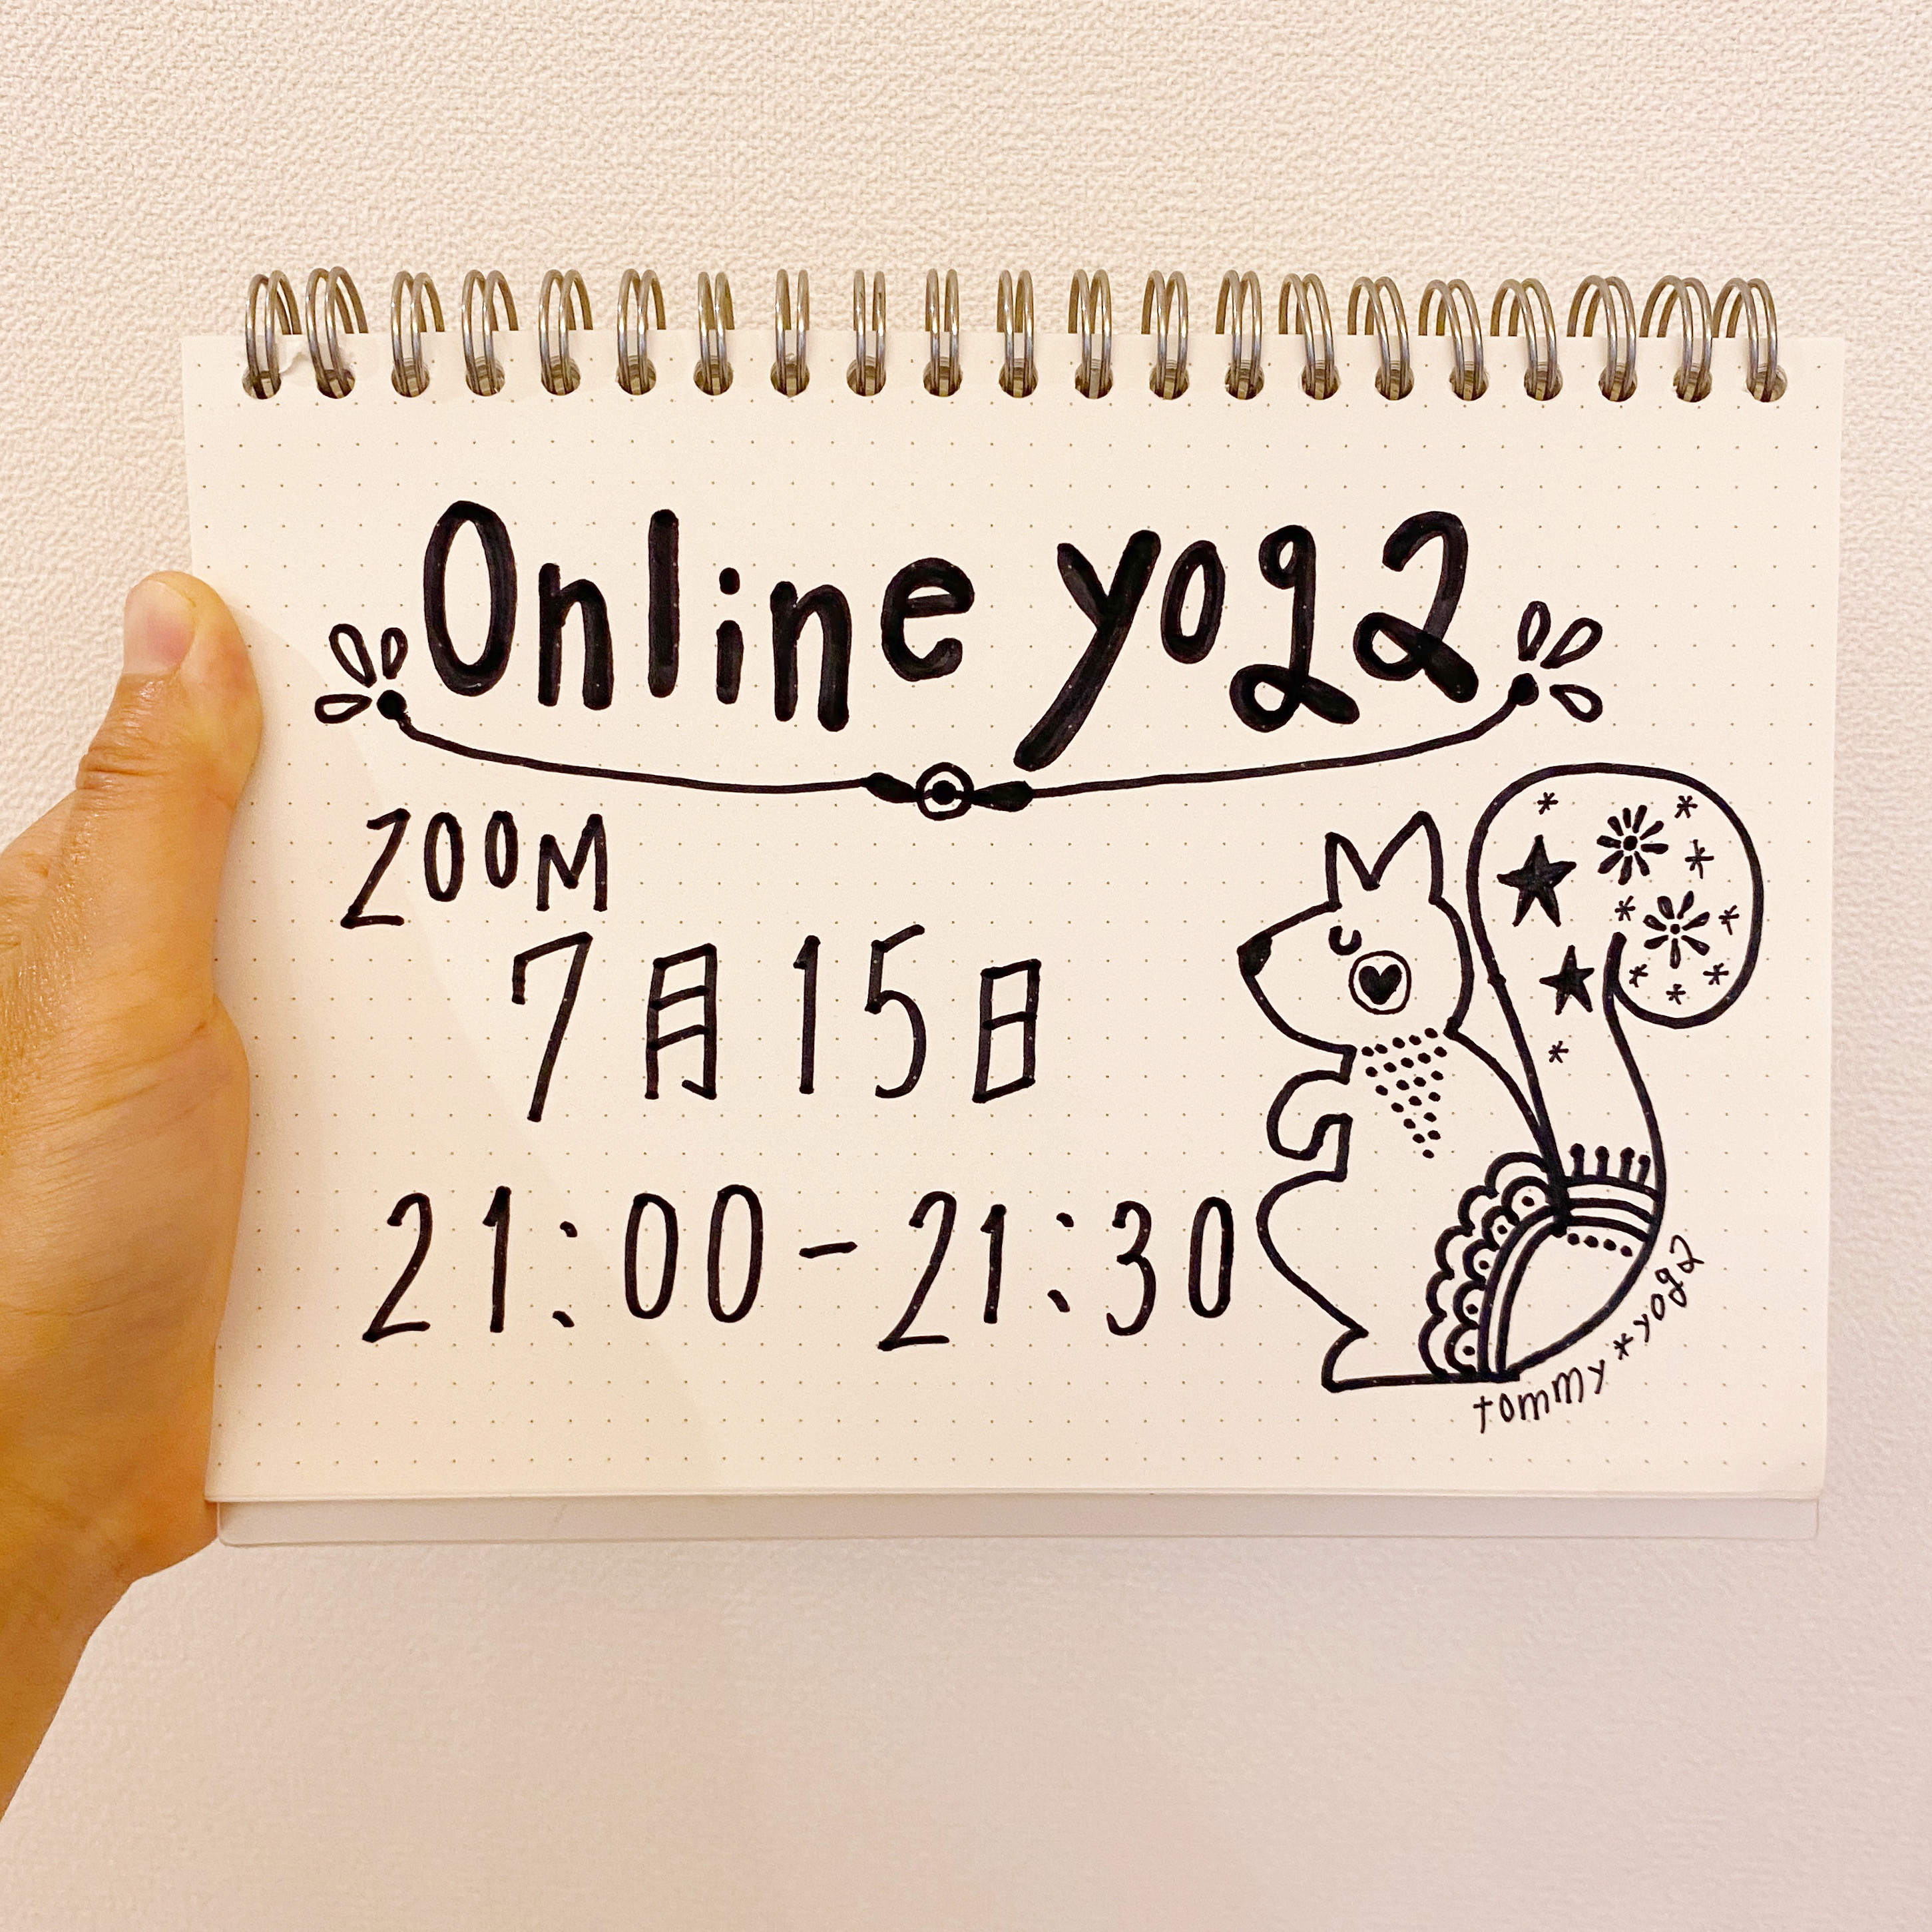 Online yoga
ZOOM
7月15日
21:00-21:30
tommy*yoga